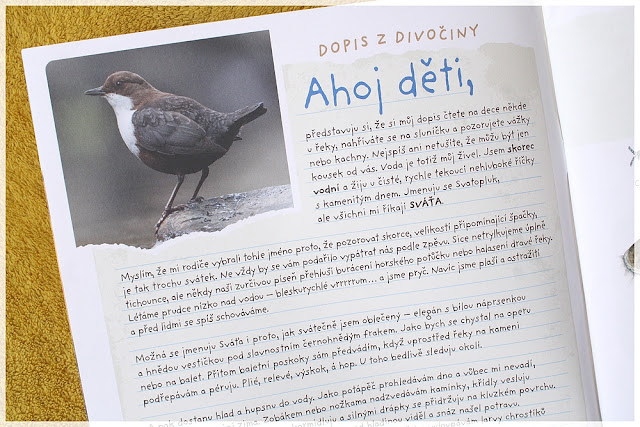 DOPIS Z DIVOČINY
Ahoj děti,
představuju si, že si můj dopis čtete na dece někde
u řeky, nahříváte se na sluníčku a pozorujete vážky
nebo kachny. Nejspíš ani netušíte, že můžu být jen
kousek od vás. Voda je totiž můj živel. Jsem skorec
vodní a žiju u čisté, rychle tekoucí nehluboké říčky
s kamenitým dnem. Jmenuju se Svatopluk,
ale všichni mi říkají SVÁŤA.
Myslím, že mi rodiče vybrali tohle jméno proto, že pozorovat skorce, velikostí připomínající špačky,
je tak trochu svátek. Ne vždy by se vám podařilo vypátrat nás podle zpěvu. Sice netrylkujeme úplně
tichounce, ale někdy naši zurčivou píseň přehluší burácení horského potůčku nebo halasení dravé řeky.
Létáme prudce nízko nad vodou – bleskurychlé vrrrrrum... a jsme pryč. Navíc jsme plaší a ostražití
a před lidmi se spíš schováváme.
Možná se jmenuju Sváťa i proto, jak svátečně jsem oblečený – elegán s bílou náprsenkou
a hnědou vestičkou pod slavnostním černohnědým frakem. Jako bych se chystal na operu
nebo na balet. Přitom baletní poskoky sám předvádím, když uprostřed řeky na kameni
podřepávám a péruju. Plié, relevé, výskok, á hop. U toho bedlivě sleduju okolí.
A pak dostanu hlad a hupsnu do vody. Jako potápěč prohledávám dno a vůbec mi nevadí,
zimě. Zobákem nebo nožkama nadzvedávám kamínky, křídly vesluju
a silnými drápky se přidržuju na kluzkém povrchu.
hladinou viděl a snáz našel potravu.
larvy chrostíků